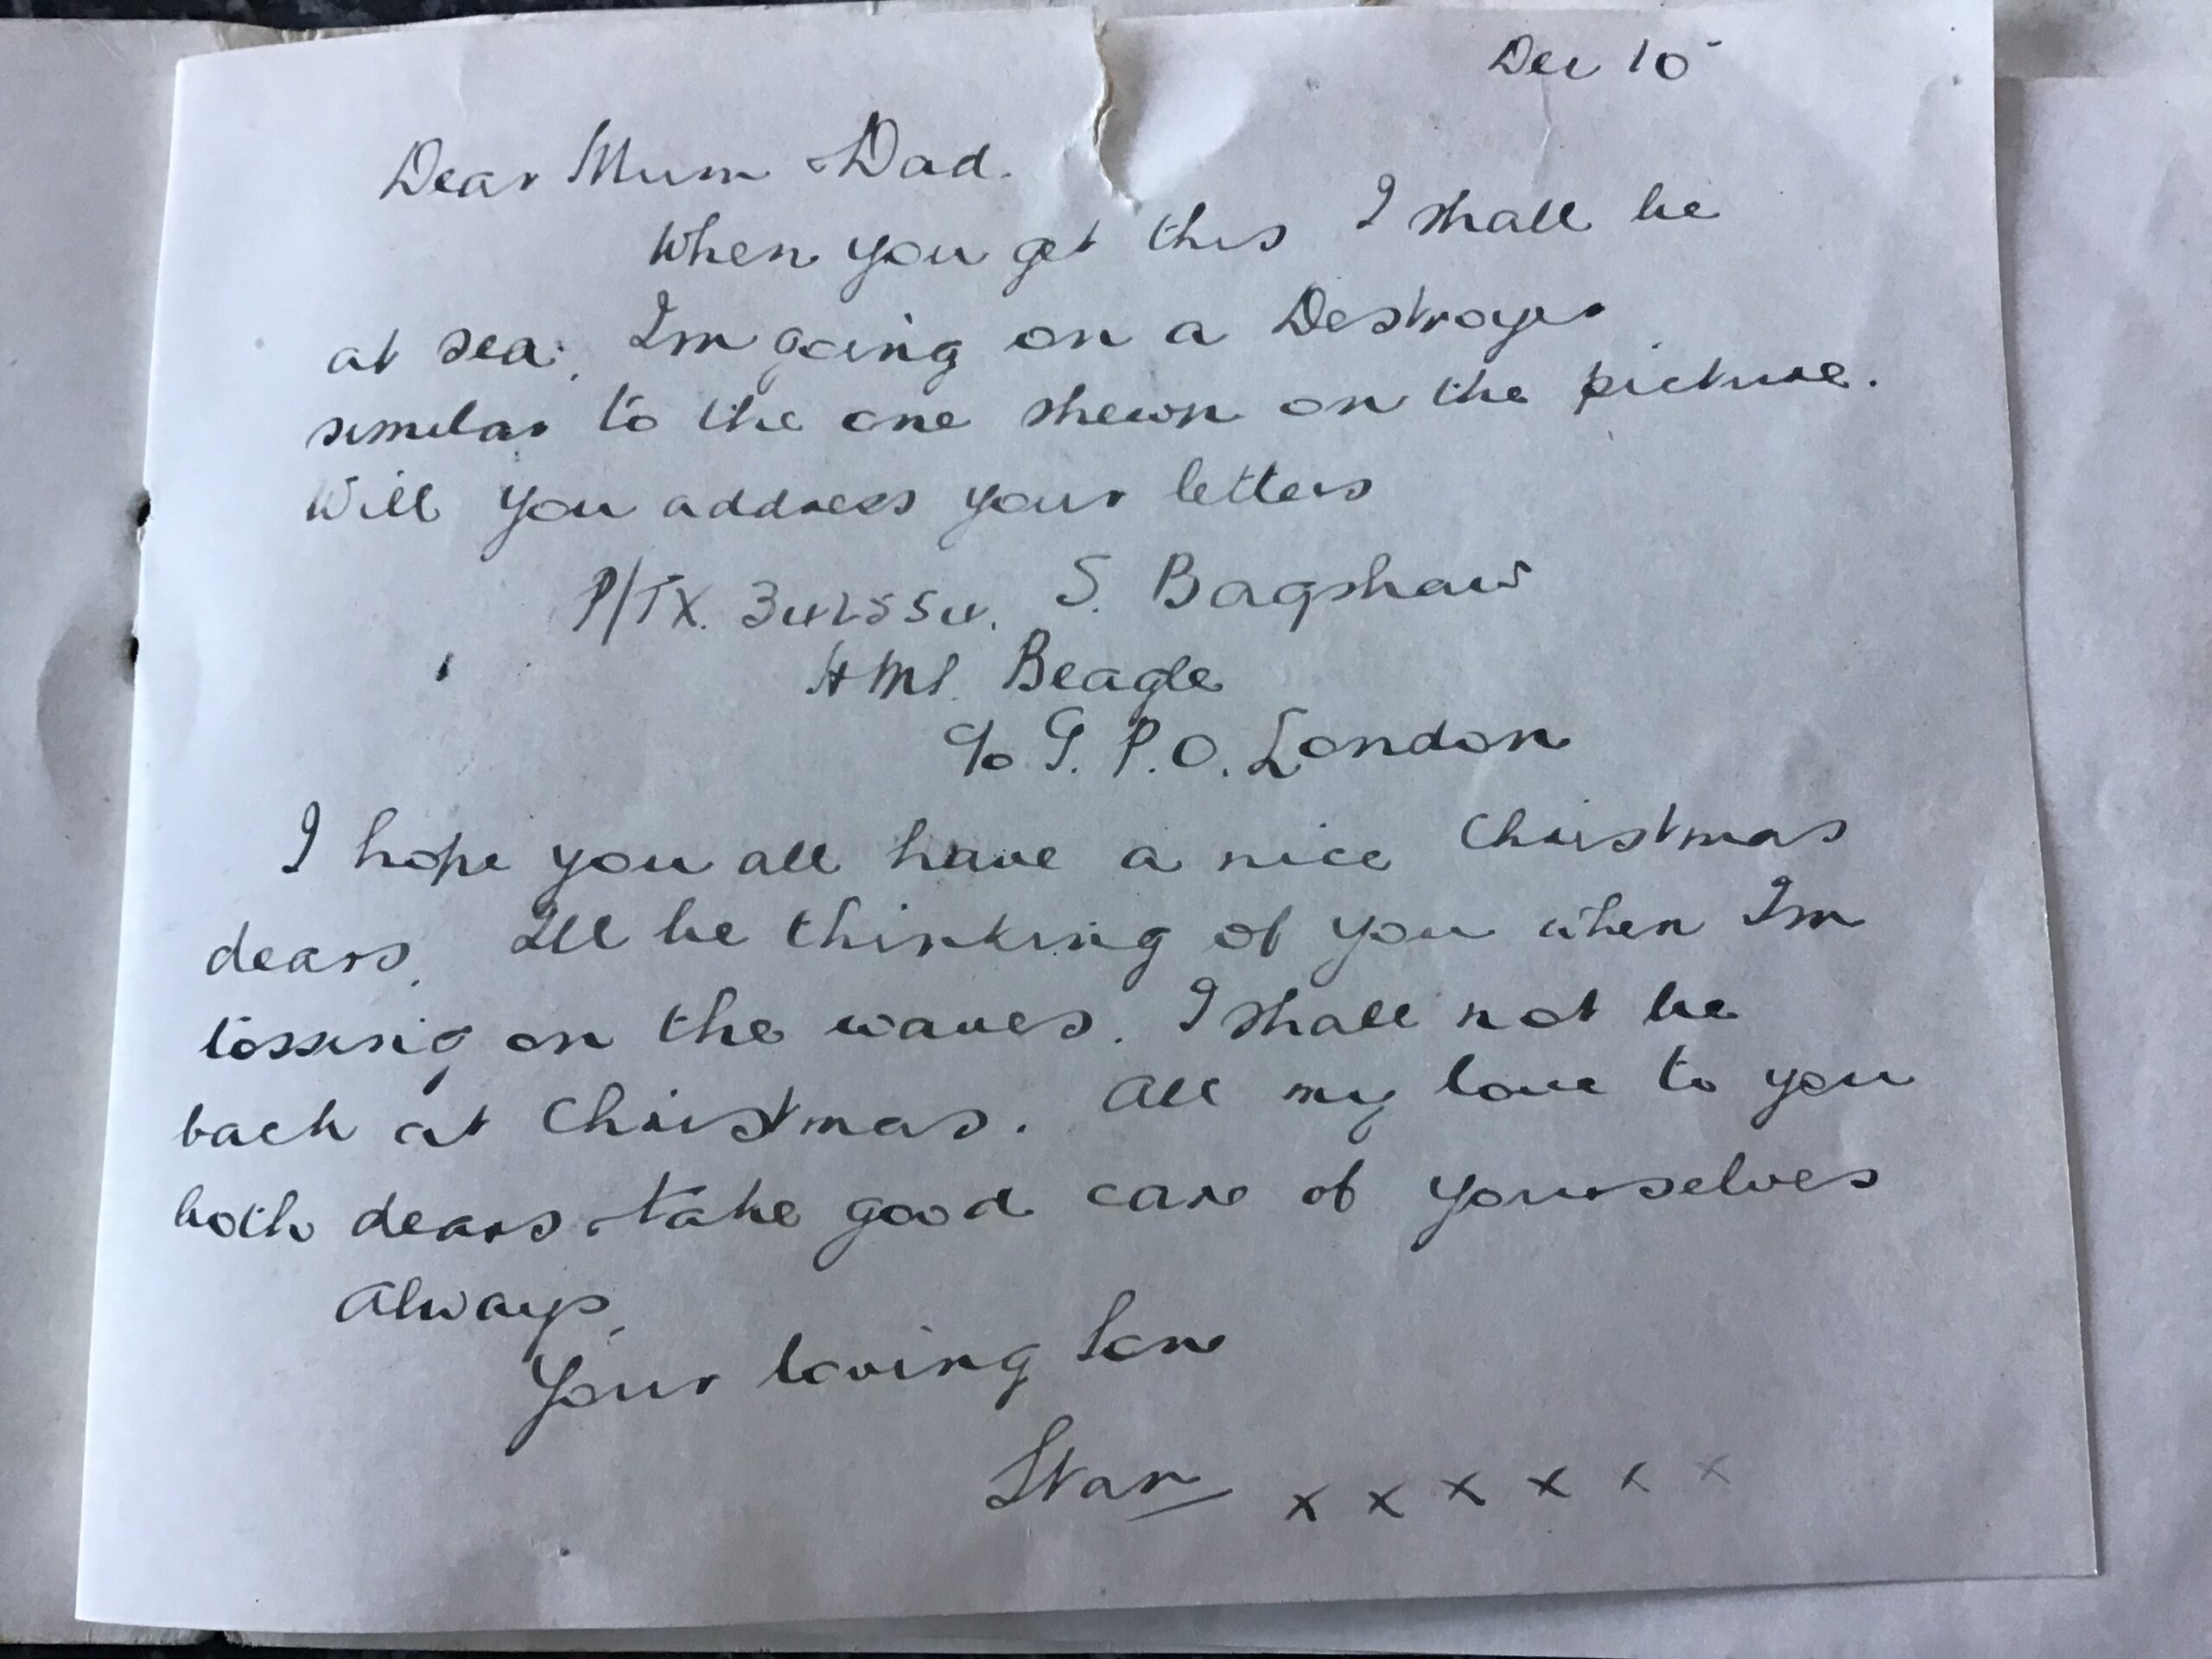 Dec 10
Dear Mum & Dad.
When you get this I shall be
at sea. Im going on a Destroyer
similar to the one shewn on the picture.
Will you address your letters
P/TX. 342554. S. Bagshaw
HMS. Beagle
c/o G.P.O. London
I hope you all have a nice Christmas
dears. Ill be thinking of you when Im
tossing on the waves. I shall not be
back at Christmas. All my love to you
both dears & take good care of yourselves
Always,
Your loving Son
Stan x x x x x x